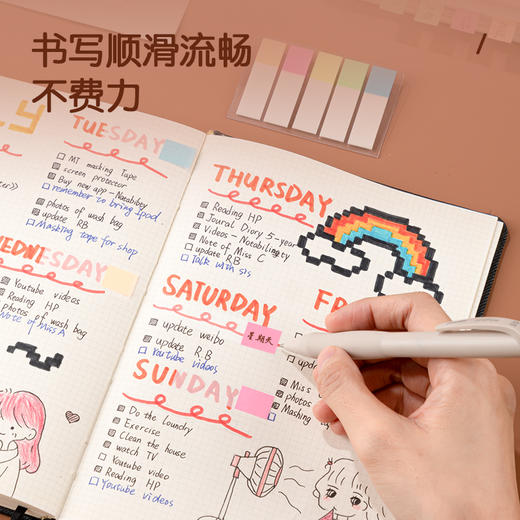 书写顺滑流畅
不费力
LY
TUESDAY
MT masking Tape
screen protector
Buy new app-Notability
remember to bring food
photos of wash bag
update RB
Masking tape for shop
WEDNESDAY
Youtube videos
Reading HP
photos of wash bag
Note of Miss A
THURSDAY
Reading HP
Joural Diary 5-year
Videos - Notabilingty
Note of Miss C
update RB
Talk with sis
SATURDAY
星期天
update weibo
update R.B
Youtube videos
FR
Miss
photos
Mashing
SUNDAY
Do the Loundry
Exercise
Clean the house
watch TV
Youtube video
Reading HP
Youtube videos